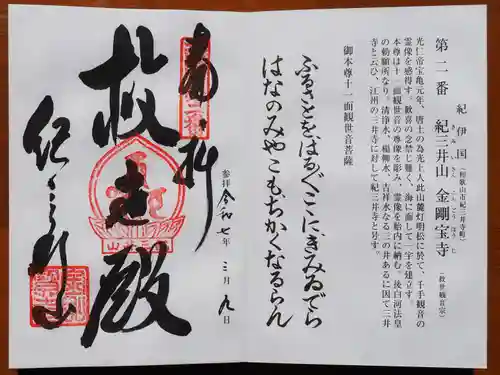 第二番 紀三井山 金剛宝寺 (救世観音宗)
きみいさん こんごうほうじ
紀伊国 (和歌山市紀三井寺町)
光仁帝宝亀元年、唐土の為光上人此山麓灯明松に於て、千手観音の
霊像を感得す。歓喜の念禁じ難く、海に面して一宇を建立す。
本尊は十一面観世音の尊像を彫み、霊像を胎内に納む。後白河法皇
の勅願所なり。清浄水、楊柳水、吉祥水なる三の井あるに因て三井
寺と云ひ、江州の三井寺に対して紀三井寺と号す。
御本尊十一面観世音菩薩
ふるさとをはるばるここにきみゐでら
はなのみやこもちかくなるらん
奉拝
参拝 令和七年 三月九日
救世殿
紀三井山